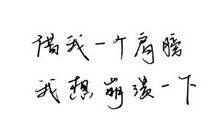 借我一个肩膀
我想崩溃一下